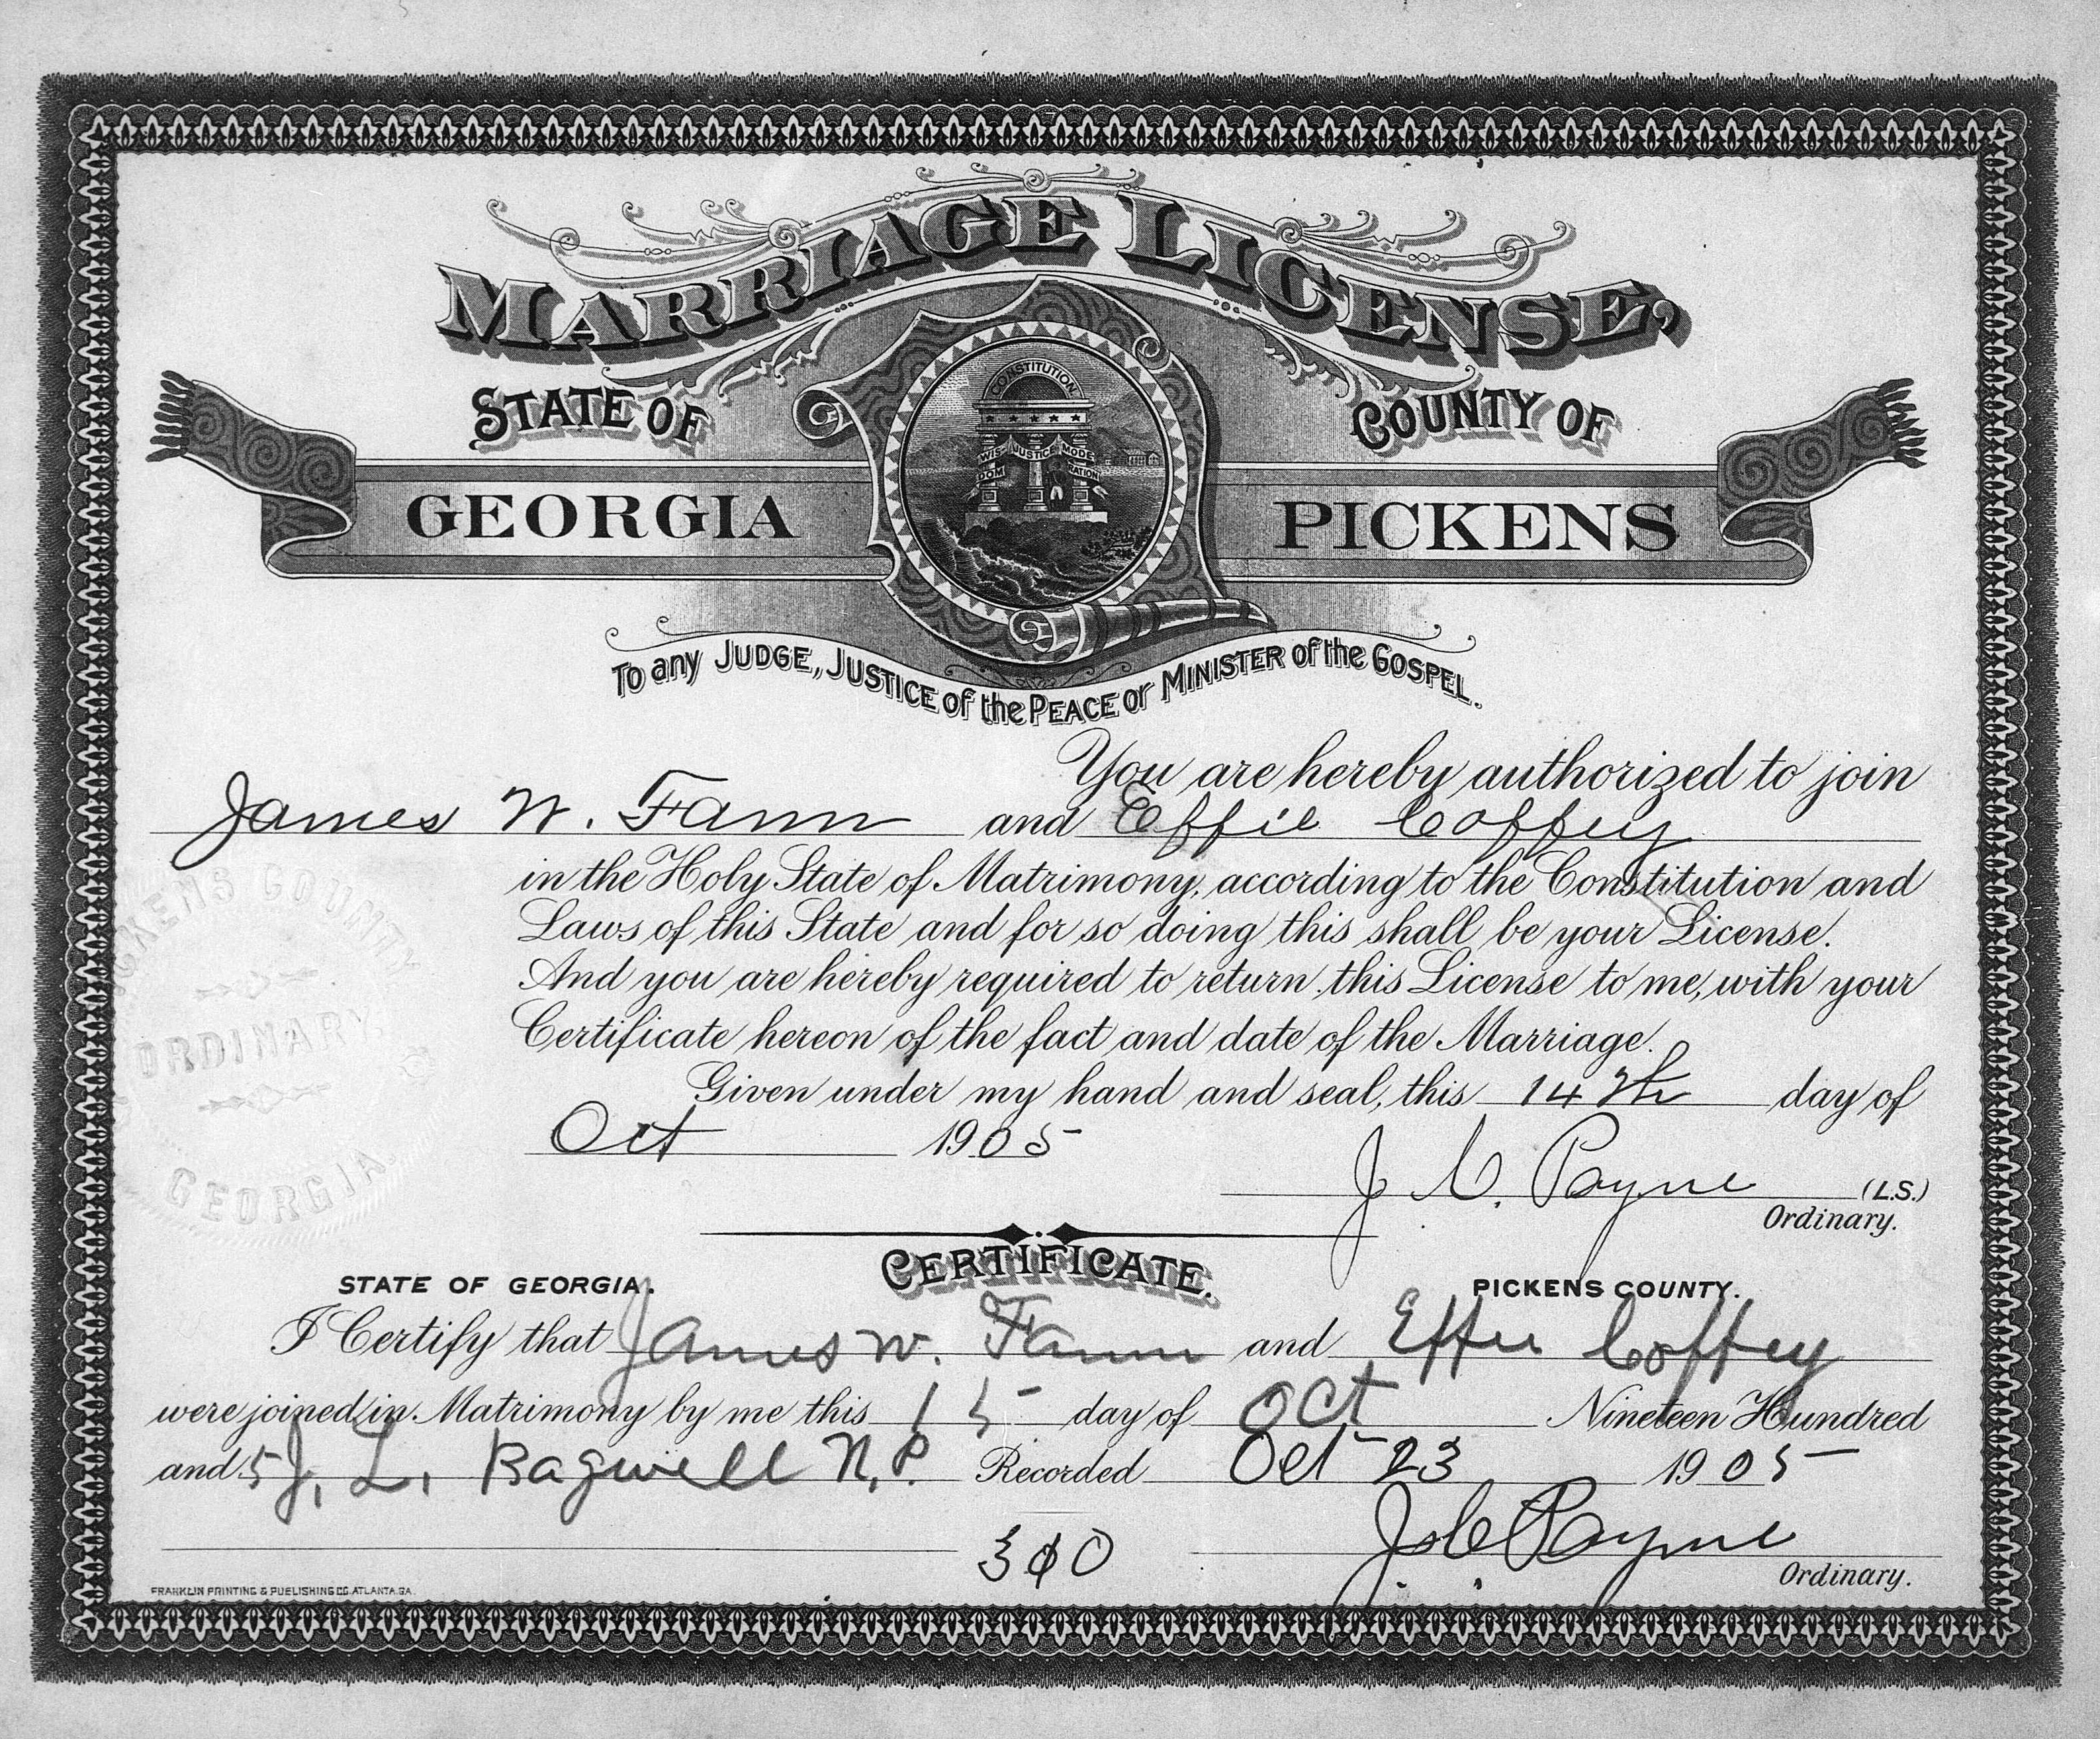 MARRIAGE LICENSE,
STATE OF
COUNTY OF
CONSTITUTION
WIS- JUSTICE MODE
DOM RATION
GEORGIA
PICKENS
To any JUDGE, JUSTICE of the PEACE or MINISTER of the GOSPEL.
You are hereby authorized to join
James W. Fann and Effie Coffey
in the Holy State of Matrimony, according to the Constitution and
Laws of this State and for so doing this shall be your License.
And you are hereby required to return this License to me, with your
Certificate hereon of the fact and date of the Marriage.
Given under my hand and seal, this 14th day of
Oct 1905
J. C. Payne (L.S.)
Ordinary.
PICKENS COUNTY
ORDINARY
GEORGIA.
CERTIFICATE.
STATE OF GEORGIA. PICKENS COUNTY.
I Certify that James W. Fann and Effie Coffey
were joined in Matrimony by me this 15 day of Oct Nineteen Hundred
and 5 J. L. Bagwell N.P. Recorded Oct 23 1905
300 J. C. Payne
Ordinary.
FRANKLIN PRINTING & PUBLISHING CO. ATLANTA. GA.